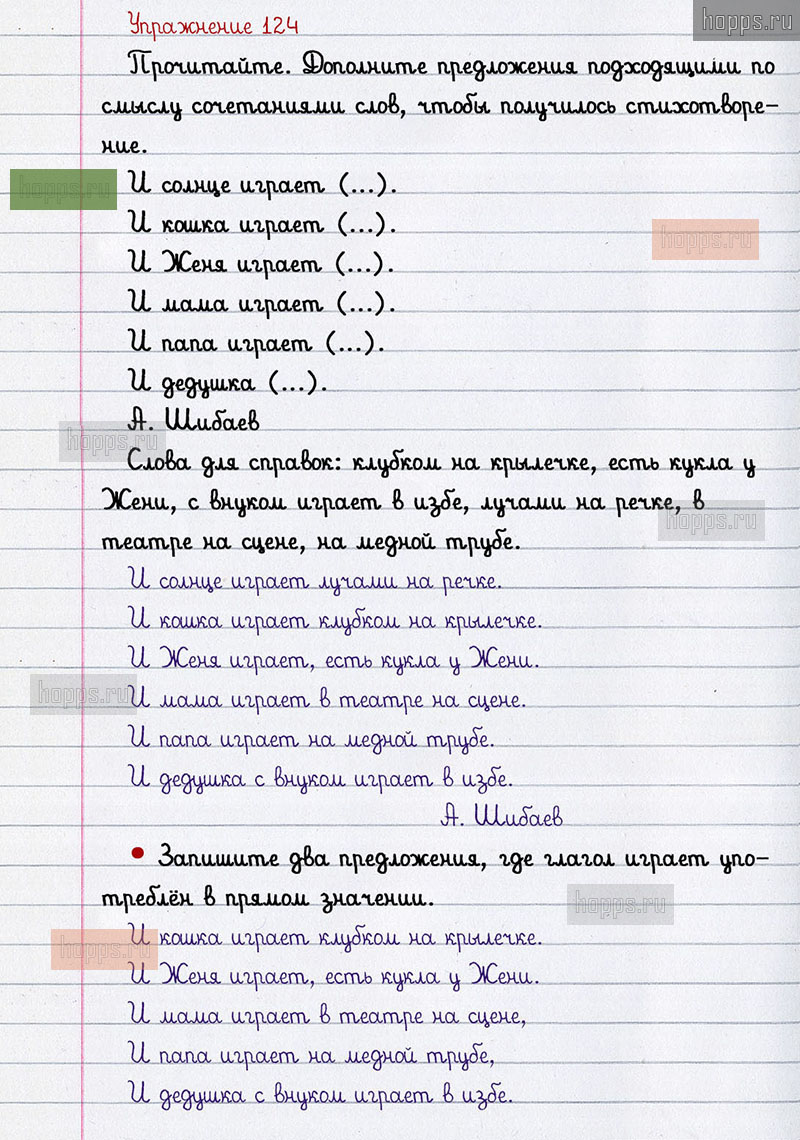 Упражнение 124
hopps.ru
Прочитайте. Дополните предложения подходящими по
смыслу сочетаниями слов, чтобы получилось стихотворе-
ние.
И солнце играет (...).
hopps.ru
И кошка играет (...).
hopps.ru
И Женя играет (...).
И мама играет (...).
И папа играет (...).
И дедушка (...).
А. Шибаев
hopps.ru
Слова для справок: клубком на крылечке, есть кукла у
Жени, с внуком играет в избе, лучами на речке, в
hopps.ru
театре на сцене, на медной трубе.
И солнце играет лучами на речке.
И кошка играет клубком на крылечке.
И Женя играет, есть кукла у Жени.
hopps.ru
И мама играет в театре на сцене.
И папа играет на медной трубе.
И дедушка с внуком играет в избе.
А. Шибаев
• Запишите два предложения, где глагол играет упо-
треблён в прямом значении.
hopps.ru
И кошка играет клубком на крылечке.
hopps.ru
И Женя играет, есть кукла у Жени.
И мама играет в театре на сцене,
И папа играет на медной трубе,
И дедушка с внуком играет в избе.